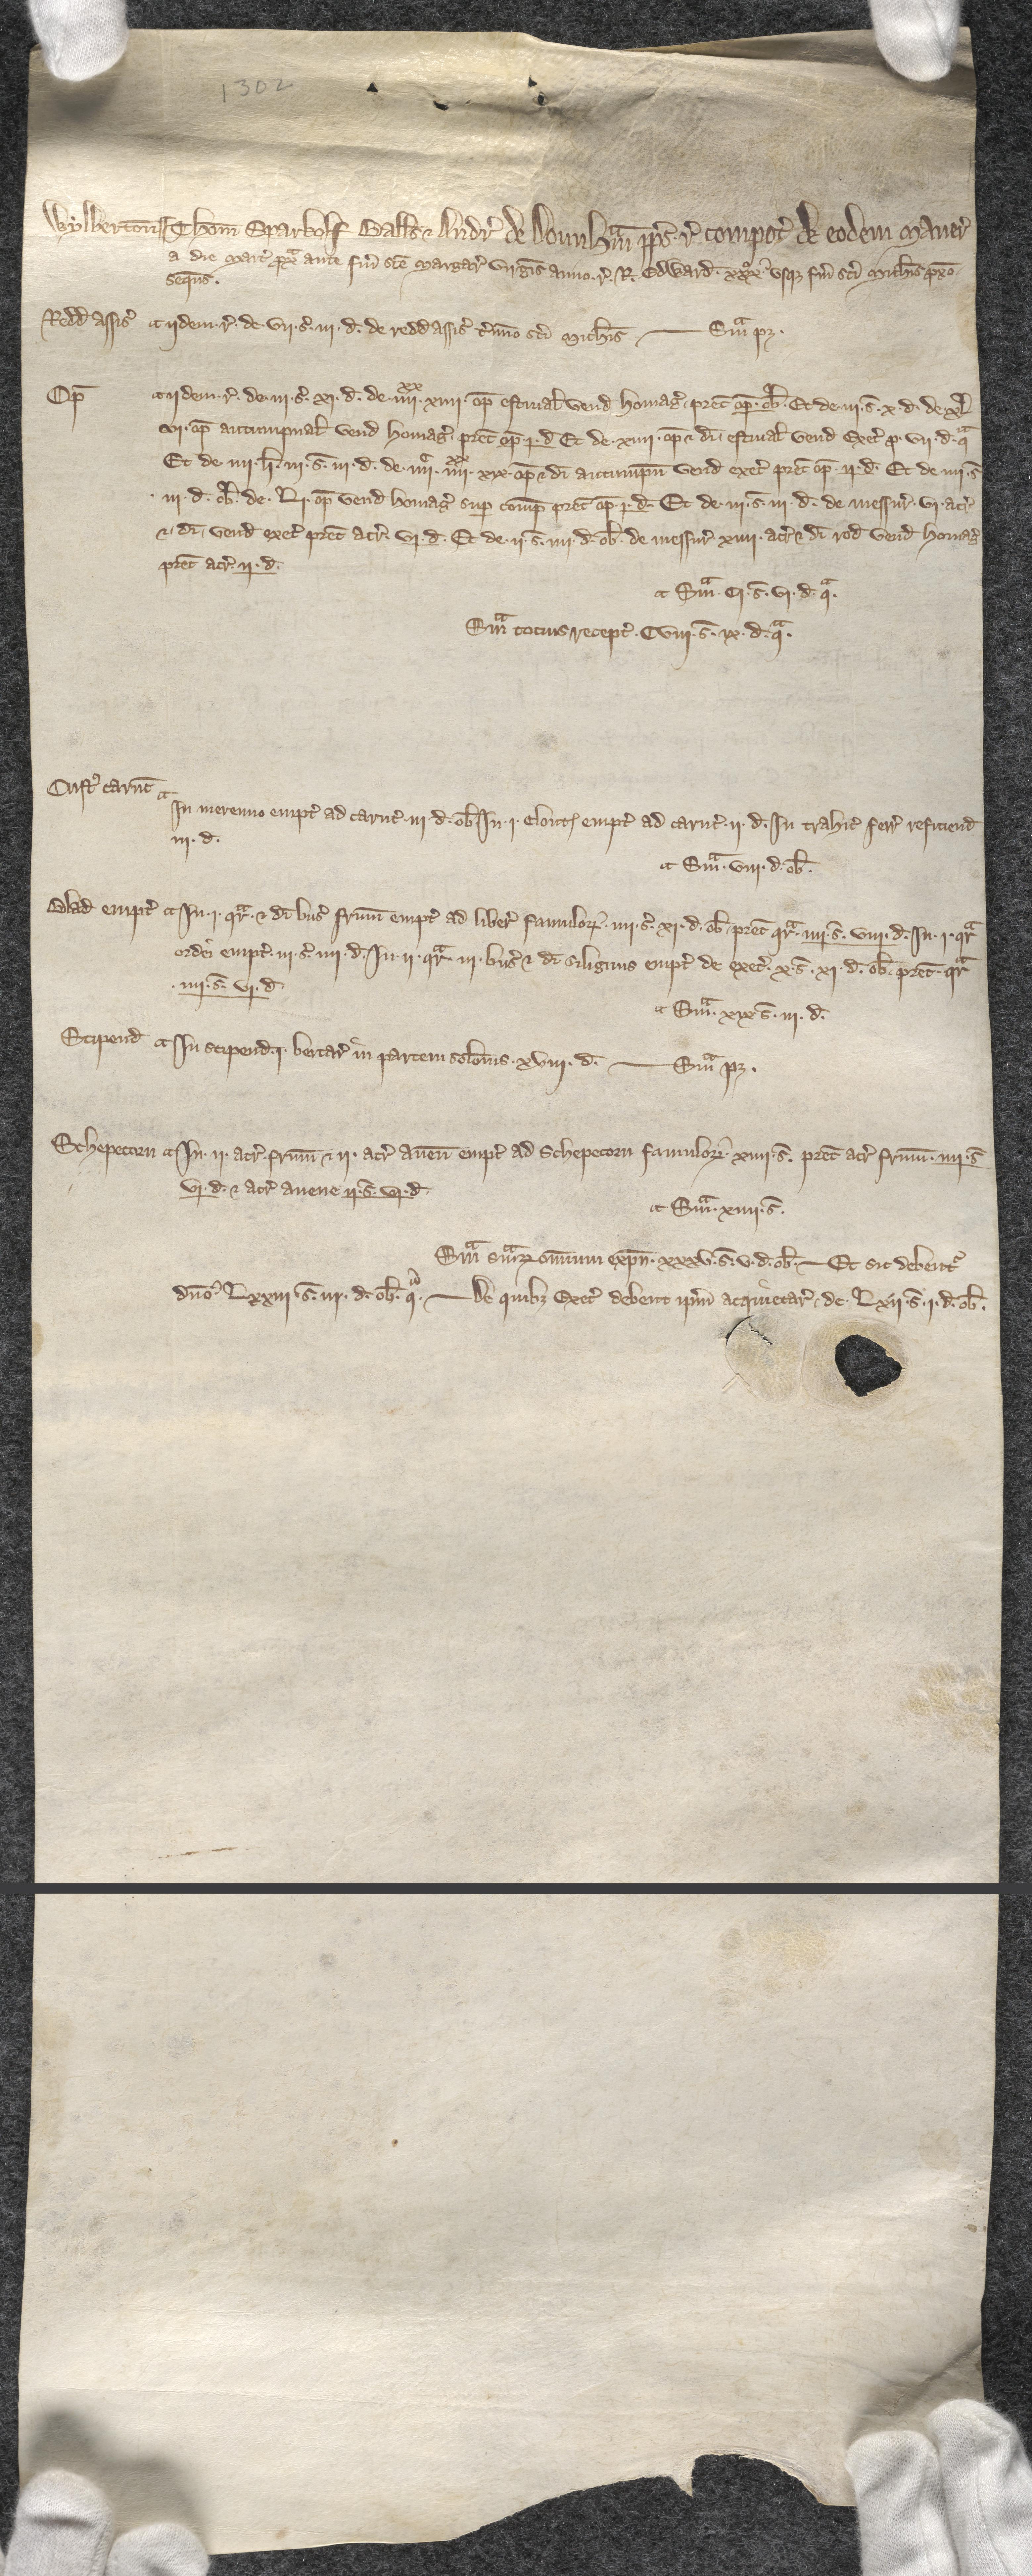 1302
Wylberton̄ Thom̄ Sparbolf Ball̄s ⁊ Andr̄ de Dounhm̄ pp̄s r̄ compot̄ de eodem Maner̄
a die Mart̄ prox̄ ante fm̄ sc̄e Margar̄ Virgīs anno. r̄. R. Edward. xxx°. usq; fm̄ sc̄i Mich̄is p̄xo
sequēs.
Redd assis̄ iidem. r̄. de. vii. s̄. iii. d. de redd assis̄ t̄mīno sc̄i Mich̄is — Sm̄ª p3.
Op̄ iidem. r̄. de. iii. s̄. xi. d. de. iiii.xx xiiii. op̄ estiual̄ vend homaḡ prec̄ op̄. ob̄. Et de. iii. s̄. x. d. de xl
vi. op̄ autumpnal̄ vend homaḡ prec̄ op̄. i. d Et de. xiiii. op̄ ⁊ di, estiual̄ vend Exec̄ p. vii. d. qª
Et de. iiii. li. iii. s̄. iii. d. de. iiii.c iiii.xx xix. op̄ ⁊ di autumpn̄ vend exec̄ prec̄ op̄. ii. d. Et de. iiii. s̄
iii. d. ob̄. de. Li. op̄ vend homaḡ sup comp̄ prec̄ op̄. i. d. Et de. iii. s̄. iii. d. de messur̄. vi. acr̄
⁊ di, vend exec̄ prec̄ acr̄. vi. d. Et de. ii. s̄. iiii. d. ob̄. de messur̄ xiiii. acr̄ ⁊ di rod vend homaḡ
prec̄ acr̄. ii. d.
Sm̄ª. Ci. s̄. vi. d. qª.
Sm̄ª totius recept̄. Cviii. s̄. ix. d. qª.
Cust9 caruc̄
In meremio empt̄ ad caruc̄. iii. d. ob̄ In. i. Clout̄ empt̄ ad caruc̄. ii. d. In trahic̄ ferr̄ reficiend
iii. d.
Sm̄ª. viii. d. ob̄.
Blad empt̄ In. i. qrª. ⁊ di bus̄ frum̄ empt̄ ad liber̄ famulor̄. iiii. s̄. xi. d. ob̄ prec̄ qrª. iiii. s̄. viii. d. In. i. qrª
ordei empt̄. iii. s̄. iiii. d. In. ii. qrª. iii. bus̄ ⁊ di siliginis empt̄ de exec̄. x. s̄. xi. d. ob̄. prec̄. qrª
iiii. s̄. vi. d
Sm̄ª. xix s̄. iii. d.
Stipend In stipend. i. bercar̄ in partem solōnis. xviii. d. — Sm̄ª p3.
Schepecorn In. ii. acr̄. frum̄ ⁊ ii. acr̄ auen̄ empt̄ ad Schepecorn famulor̄. xiiii. s̄. prec̄ acr̄ frum̄. iiii. s̄
vi. d. ⁊ acr̄ auene ii. s̄. vi. d.
Sm̄ª. xiiii. s̄.
Sm̄ª sm̄ªr̄ omnium exp̄n. xxxv. s̄. v. d. ob̄. — Et sic debent̄
dn̄o Lxxiii s̄. iii. d. ob̄. qª. — De quib; Exec̄ debent ip̄m acquietar̄ de. Lxii. s̄. i. d. ob̄.